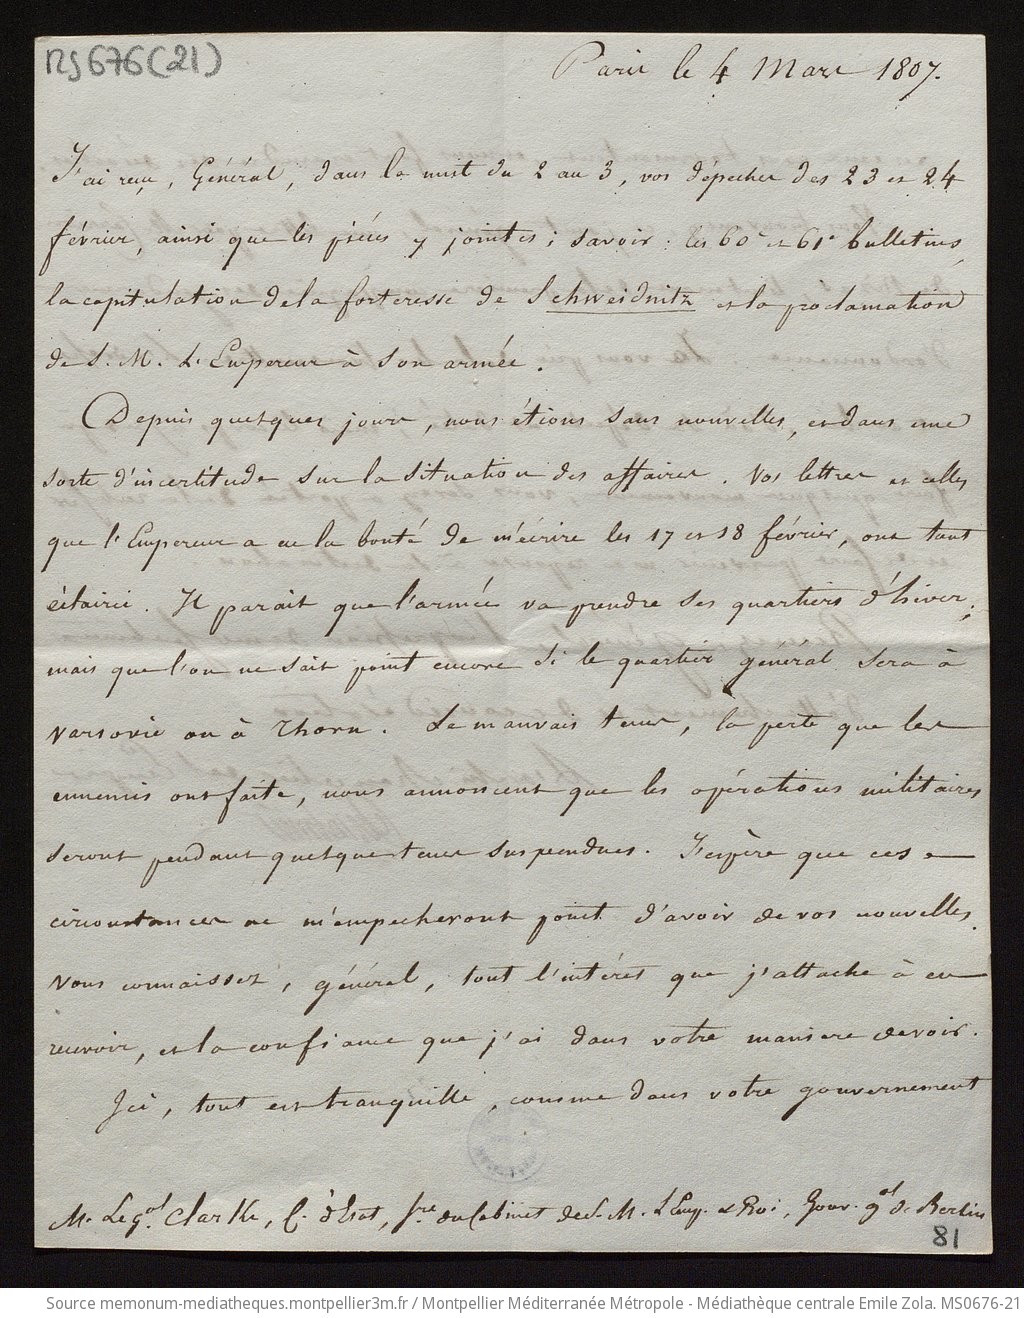 MS 676 (21)
Paris le 4 Mars 1807.
J'ai reçu, Général, dans la nuit du 2 au 3, vos dépeches des 23 et 24
février, ainsi que les piéces y jointes ; savoir : les 60e et 61e bulletins,
la capitulation de la forteresse de Schweidnitz et la proclamation
de S. M. L'Empereur à son armée.
Depuis quelques jours, nous étions sans nouvelles, et dans une
sorte d'incertitude sur la situation des affaires. Vos lettres et celles
que l'Empereur a eu la bonté de m'écrire les 17 et 18 février, ont tout
éclairci. Il parait que l'armée va prendre ses quartiers d'hiver ;
mais que l'on ne sait point encore si le quartier général sera à
Varsovie ou à Thorn. Le mauvais tems, la perte que les
ennemis ont faite, nous annoncent que les opérations militaires
seront pendant quelque tems suspendues. J'espère que ces
circonstances ne m'empecheront point d'avoir de vos nouvelles.
Vous connaissez, général, tout l'intérêt que j'attache à en
recevoir, et la confiance que j'ai dans votre maniere de voir.
Ici, tout est tranquille, comme dans votre gouvernement
M. Le Gal. Clarke, C. d'Etat, Sre. du Cabinet de S. M. L'Emp. et Roi, Gouv. gal de Berlin
81
Source memonum-mediatheques.montpellier3m.fr / Montpellier Méditerranée Métropole - Médiathèque centrale Emile Zola. MS0676-21